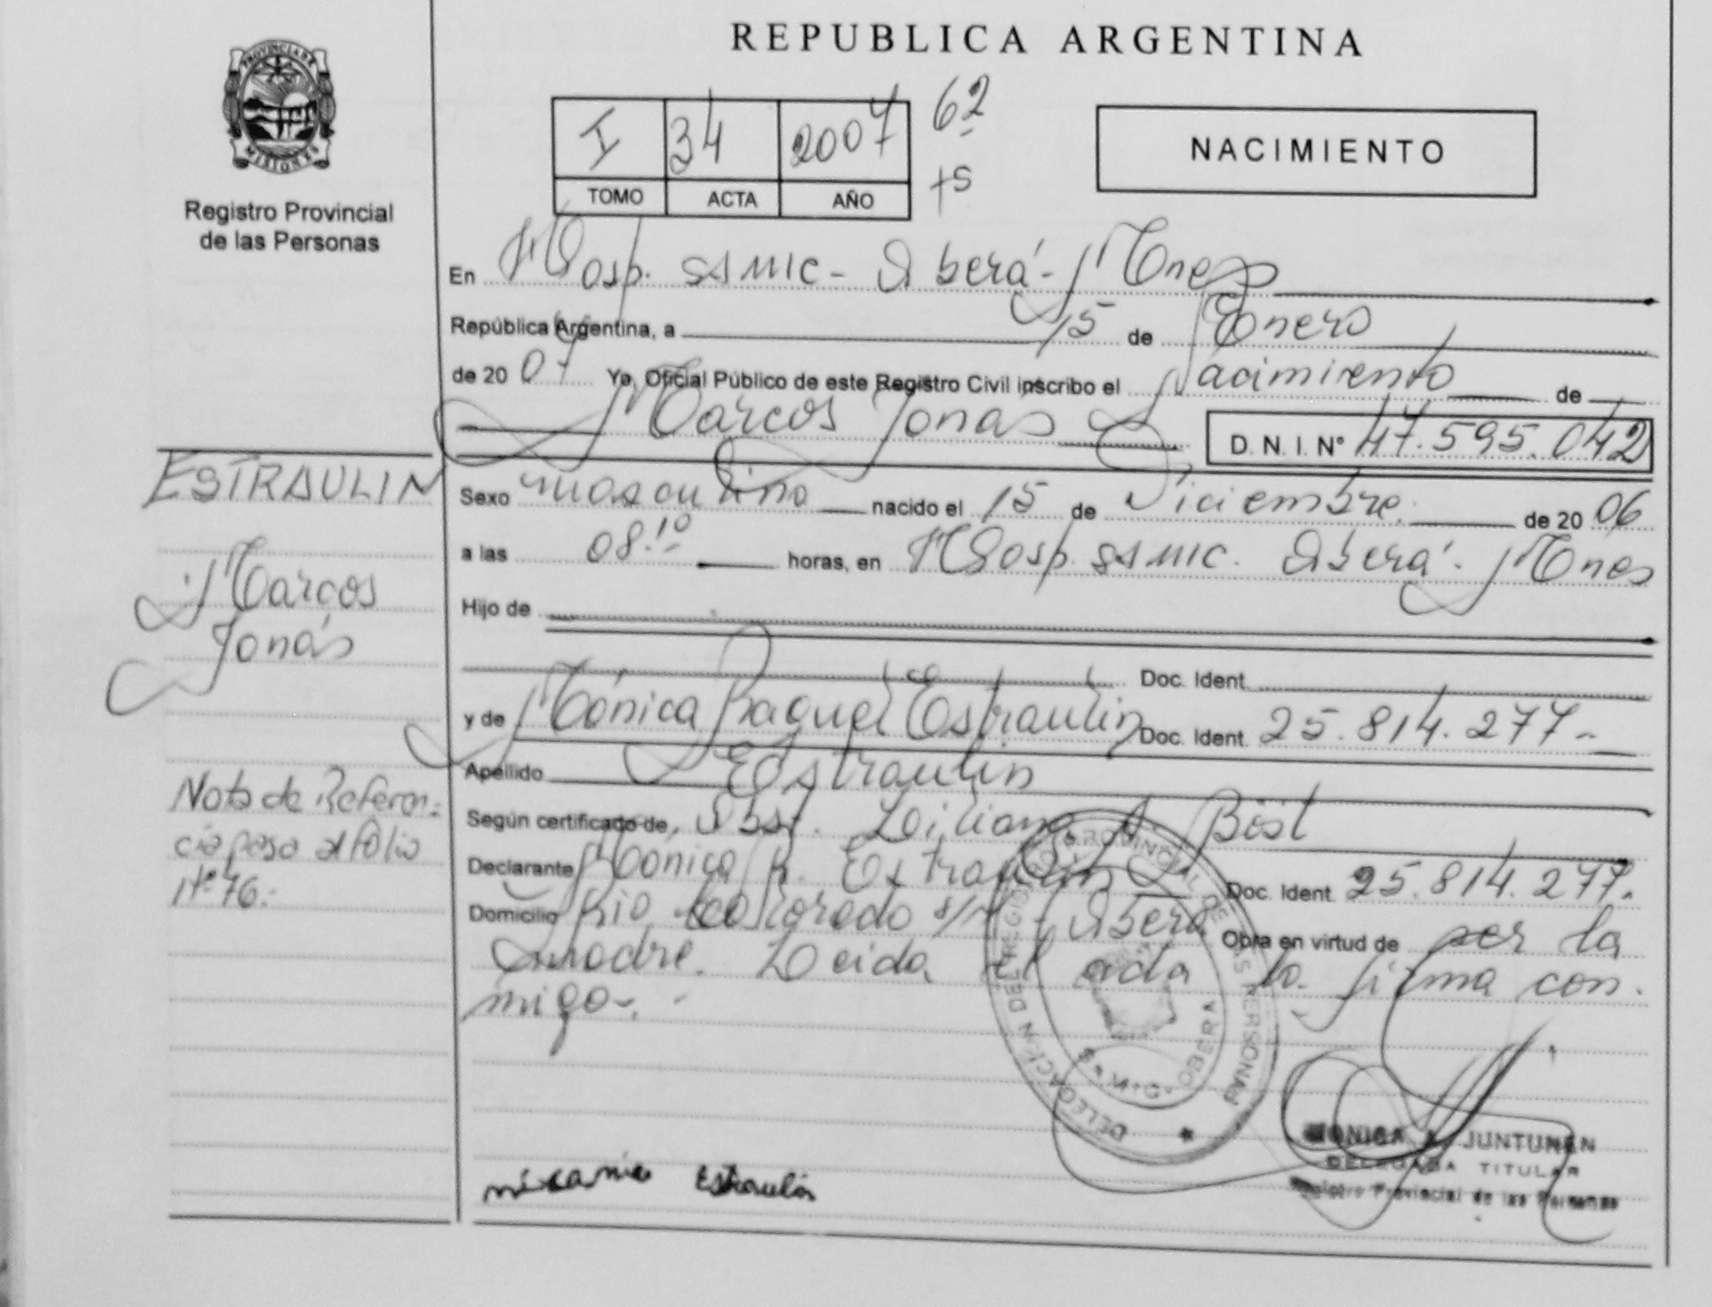 PROVINCIA DE
MISIONES
Registro Provincial
de las Personas
REPUBLICA ARGENTINA
I 34 2007 62
TOMO ACTA AÑO
NACIMIENTO
En Hosp. SAMIC - Oberá - Mnes
República Argentina, a 15 de Enero
de 20 07 Yo, Oficial Público de este Registro Civil inscribo el Nacimiento de
Marcos Jonás D. N. I. Nº 47.595.042
ESTRAULIN
Marcos
Jonás
Sexo masculino nacido el 15 de Diciembre de 20 06
a las 08:10 horas, en Hosp. SAMIC. Oberá - Mnes
Hijo de
Doc. Ident.
y de Mónica Raquel Estraulin Doc. Ident. 25.814.277-
Apellido Estraulin
Según certificado de, Obst. Liliana A. Böst
Declarante Mónica R. Estraulin Doc. Ident. 25.814.277.
Domicilio Río Colorado s/n - Oberá Obra en virtud de ser la
madre. Leida el acta la firma con-
migo-.
Nota de Referen-
cia pasa al folio
Nº 76.
DELEGACION DEL REGISTRO PROVINCIAL DE LAS PERSONAS
OBERA
Estraulin
MONICA A. JUNTUNEN
DELEGADA TITULAR
Registro Provincial de las Personas